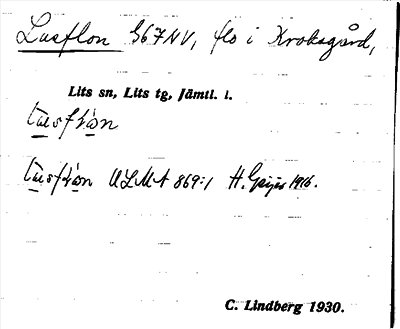 Lusflon G67NV, flo i Kroksgård,
Lits sn, Lits tg, Jämtl. l.
ULMA 869:1 H. Geijer 1916.
C. Lindberg 1930.